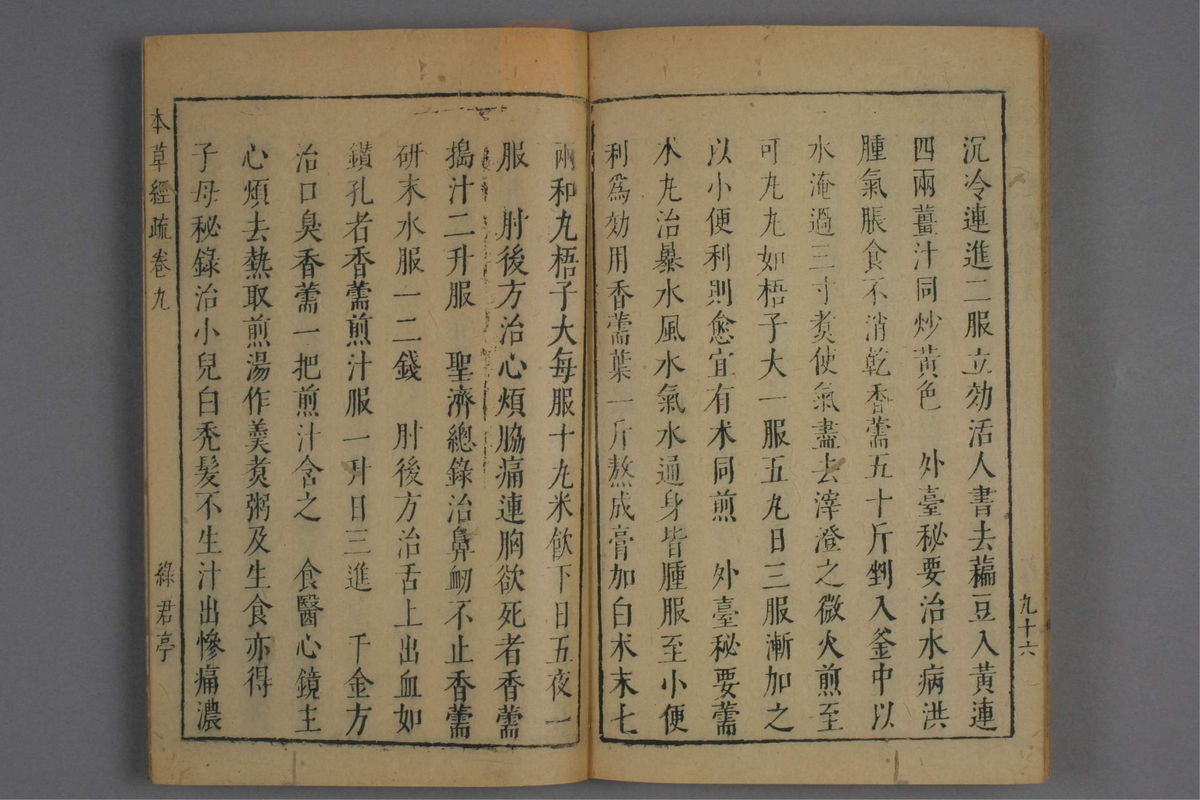 沉冷連進二服立効活人書去藊豆入黃連
四兩薑汁同炒黃色　外臺秘要治水病洪
腫氣脹食不消乾香薷五十斤剉入釜中以
水淹過三寸煑使氣盡去滓澄之微火煎至
可丸丸如梧子大一服五丸日三服漸加之
以小便利則愈宜有术同煎　外臺秘要薷
术丸治暴水風水氣水通身皆腫服至小便
利爲効用香薷葉一斤熬成膏加白术末七
九十六
兩和丸梧子大每服十丸米飮下日五夜一
服　肘後方治心煩脇痛連胸欲死者香薷
搗汁二升服　聖濟總錄治鼻衂不止香薷
研末水服一二錢　肘後方治舌上出血如
鑚孔者香薷煎汁服一升日三進　千金方
治口臭香薷一把煎汁含之　食醫心鏡主
心煩去熱取煎湯作羹煑粥及生食亦得
子母秘錄治小兒白禿髮不生汁出慘痛濃
本草經疏卷九
綠君亭